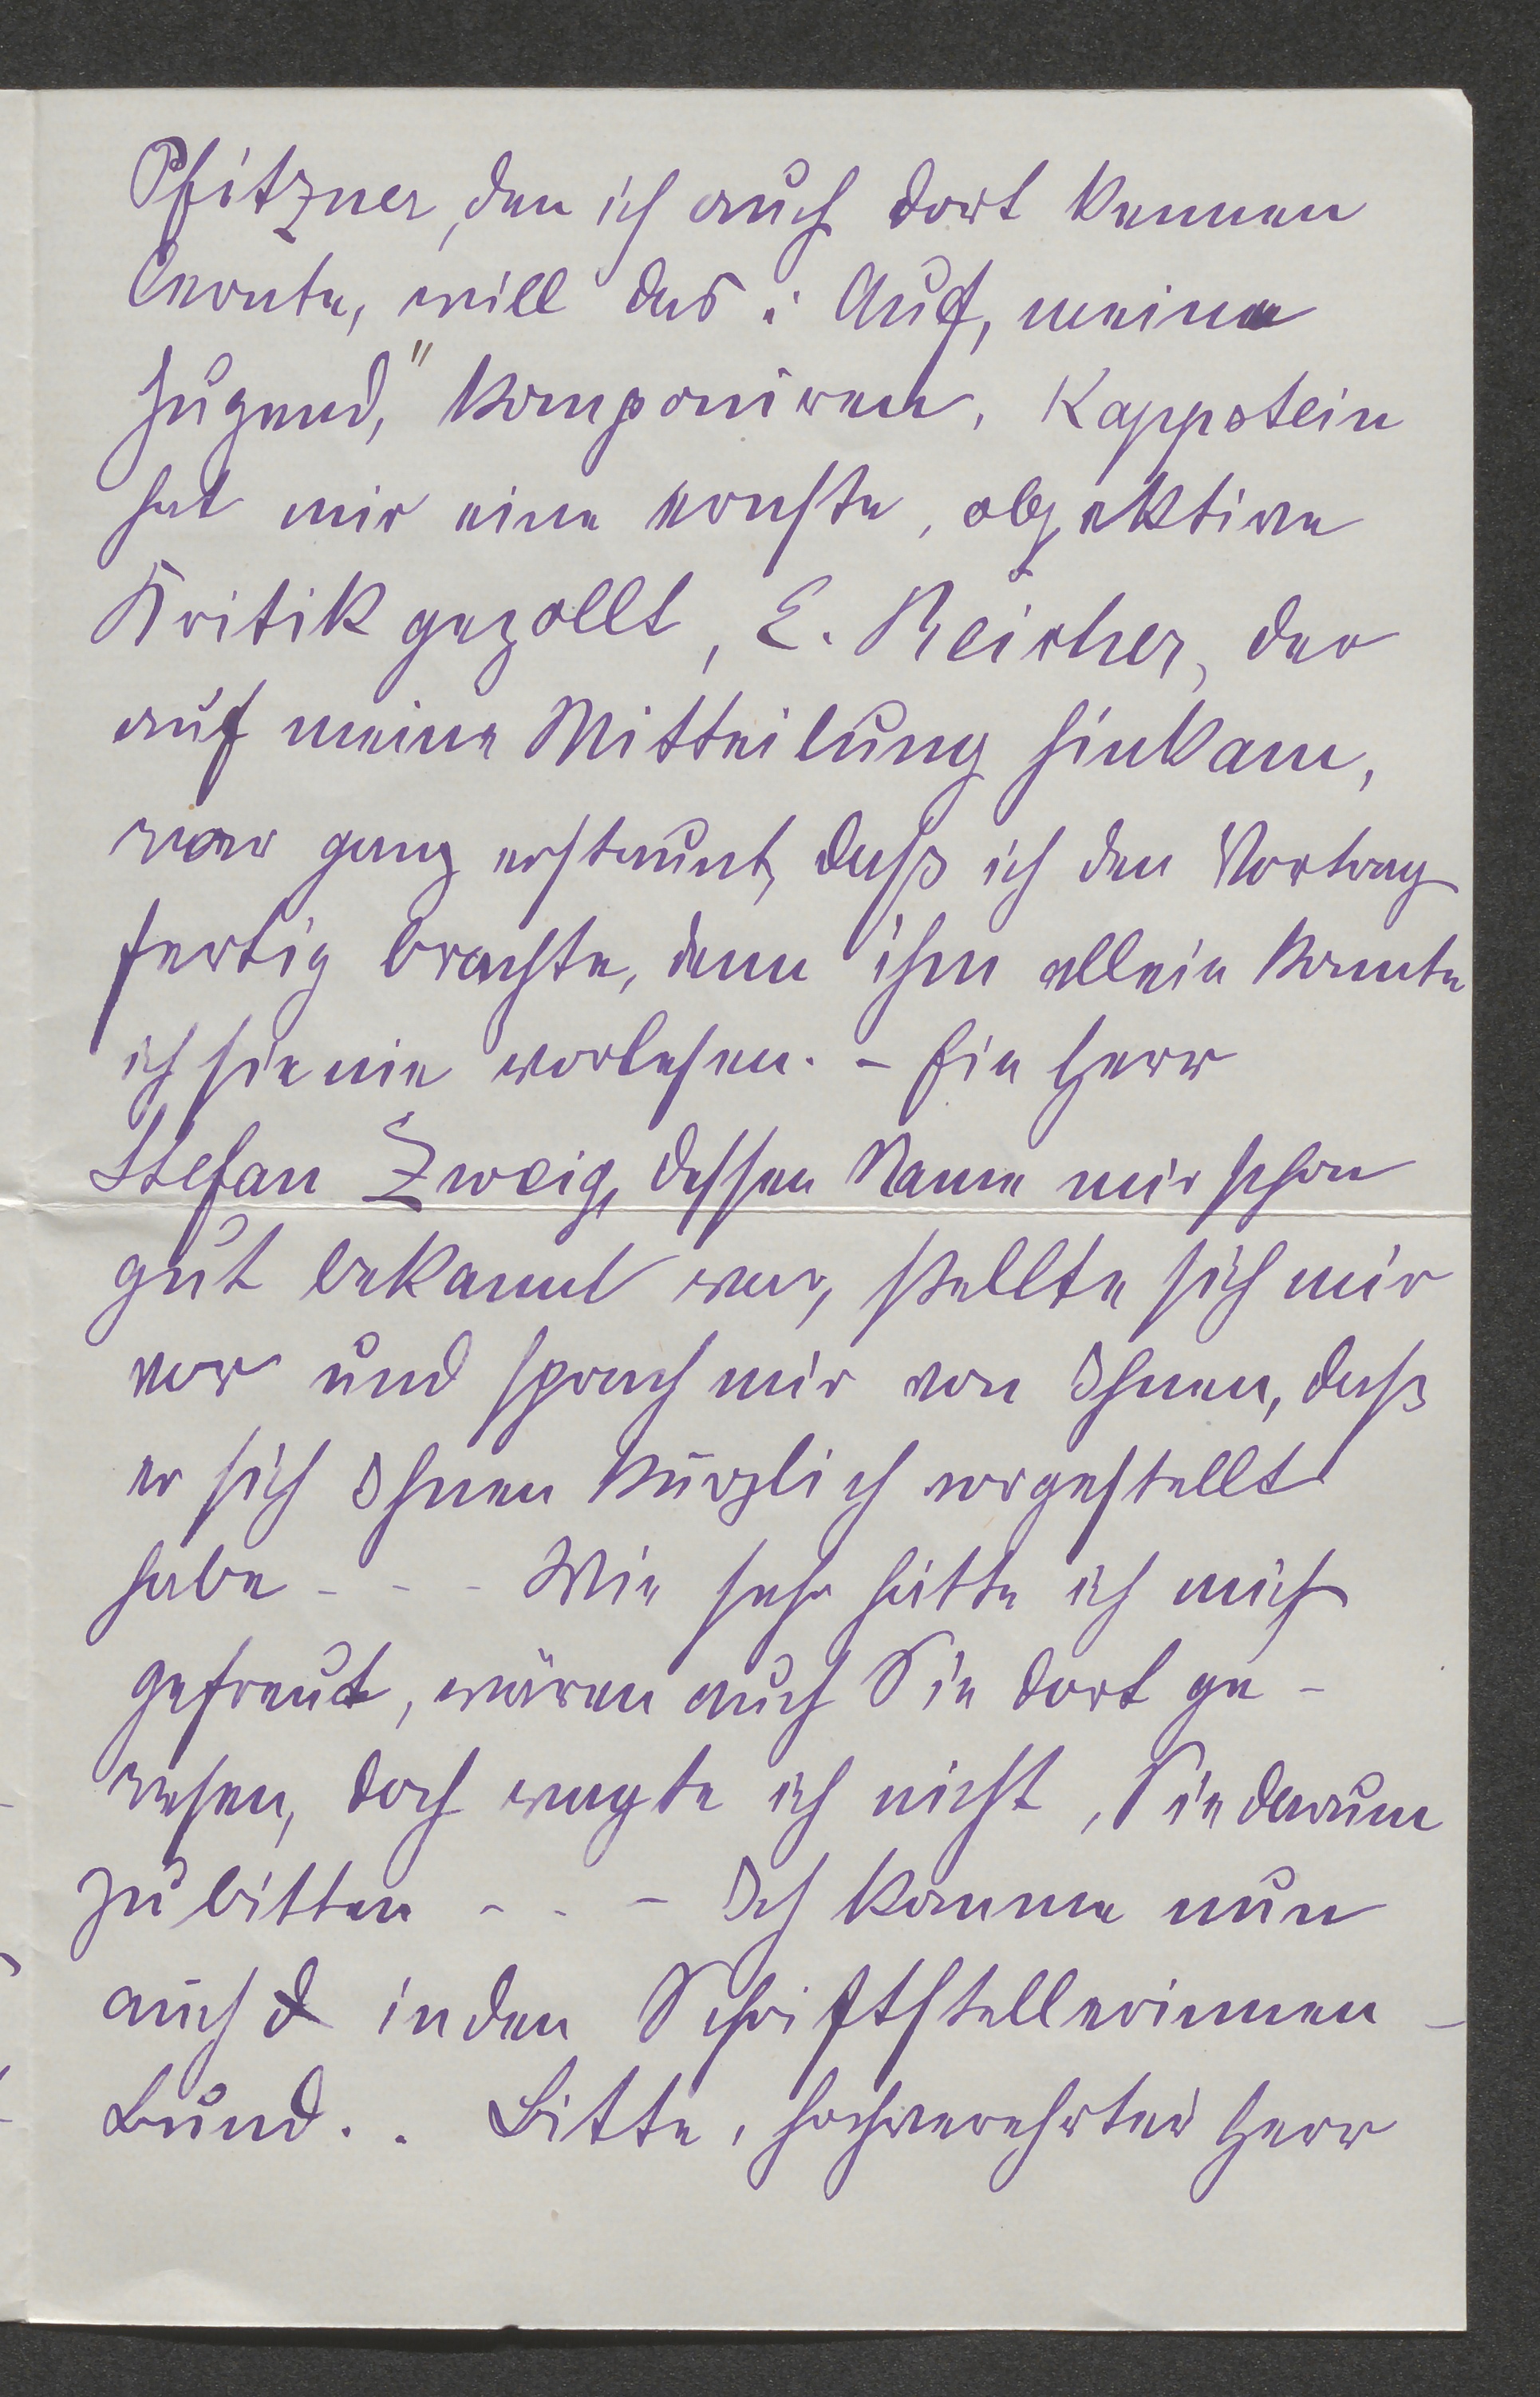 Pfitzner, den ich auch dort kennen
lernte, will das: Auf, meine
Jugend," komponiren. Kappstein
hat mir eine ernste, objektive
Kritik gezollt, E. Reicher, der
auf meine Mitteilung hinkam,
war ganz erstaunt, daß ich den Vortrag
fertig brachte, denn ihm allein konnte
ich sie nie vorlesen. - Ein Herr
Stefan Zweig, dessen Name mir schon
gut bekannt war, stellte sich mir
vor und sprach mir von Ihnen, daß
er sich Ihnen kürzlich vorgestellt
habe - - - Wie sehr hätte ich mich
gefreut, wären auch Sie dort ge-
wesen, doch wagte ich nicht, Sie darum
zu bitten - - - Ich komme nun
auch in den Schriftstellerinnen-
bund. . Bitte, hochverehrter Herr